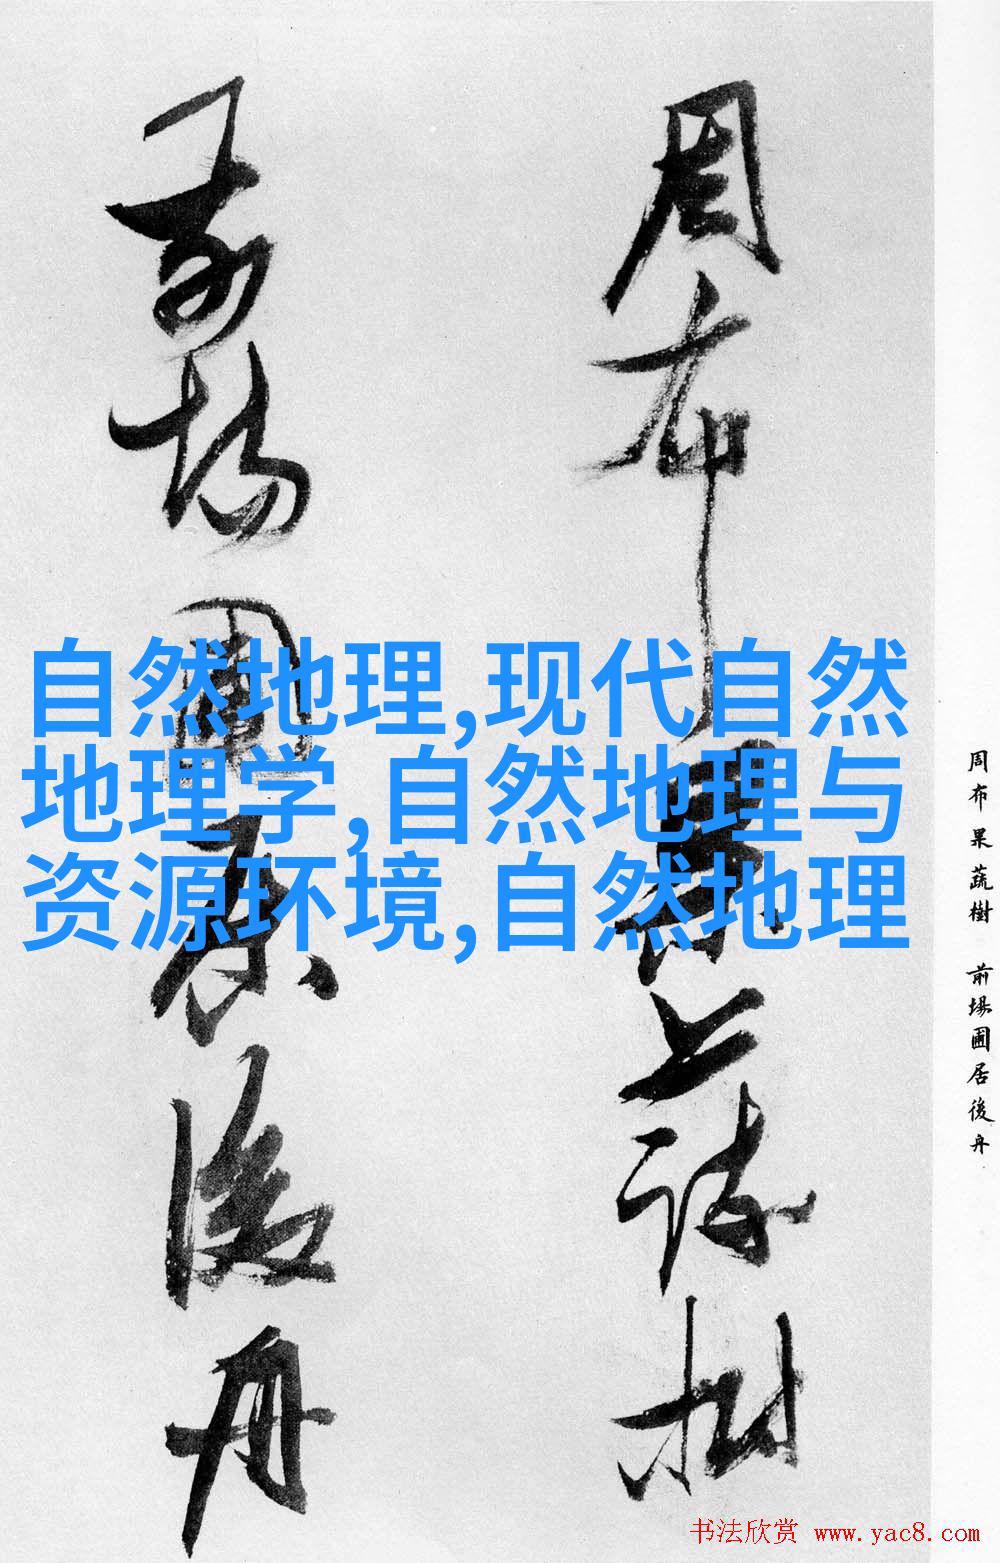 周布果蔬樹
前場圃居後舟
自然地理,现代自然
地理学,自然地理与
资源环境,自然地理
周布果蔬樹 前場圃居後舟
书法欣赏 www.yac8.com